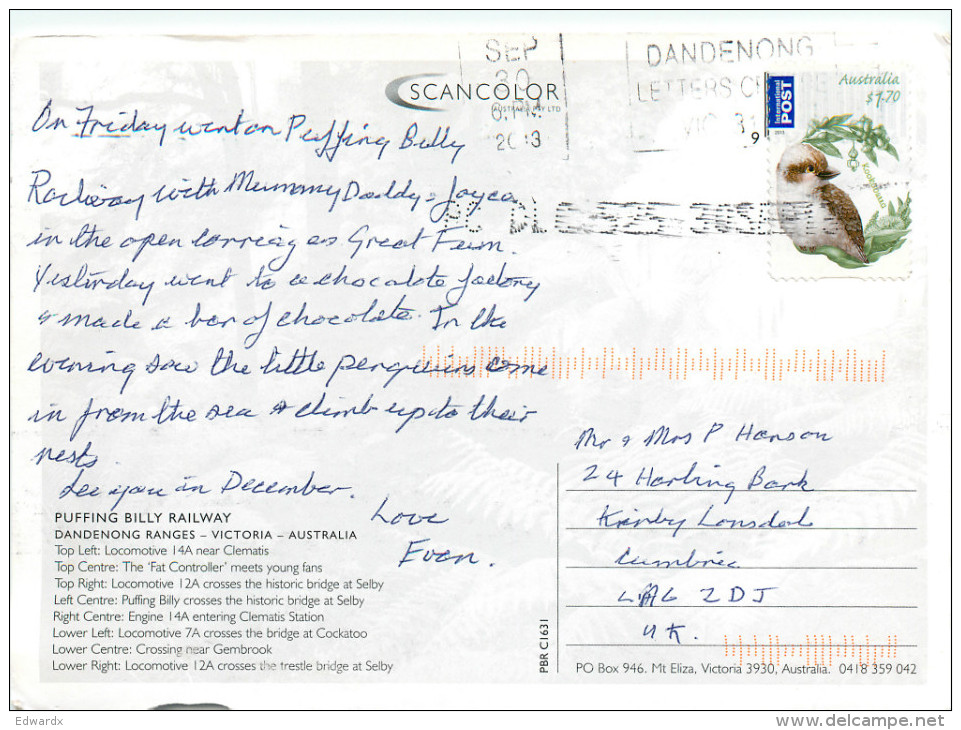 SEP
30
6 PM
2013
DANDENONG
LETTERS
VIC 31
9
International
POST
2013
Australia
$1.70
Kookaburra
SCANCOLOR
AUSTRALIA PTY LTD
On Friday went on Puffing Billy
Railway with Mummy Daddy & Joyce
in the open carriages Great Fun.
Yesterday went to a chocolate factory
& made a bar of chocolate. In the
evening saw the little penguins come
in from the sea & climb up to their
nests.
See you in December.
Love
Evan.
PUFFING BILLY RAILWAY
DANDENONG RANGES – VICTORIA – AUSTRALIA
Top Left: Locomotive 14A near Clematis
Top Centre: The 'Fat Controller' meets young fans
Top Right: Locomotive 12A crosses the historic bridge at Selby
Left Centre: Puffing Billy crosses the historic bridge at Selby
Right Centre: Engine 14A entering Clematis Station
Lower Left: Locomotive 7A crosses the bridge at Cockatoo
Lower Centre: Crossing near Gembrook
Lower Right: Locomotive 12A crosses the trestle bridge at Selby
PBR C1631
Mr & Mrs P Hanson
24 Harling Bank
Kirkby Lonsdale
Cumbria
LA6 2DJ
UK.
PO Box 946. Mt Eliza, Victoria 3930, Australia. 0418 359 042
Edwardx
www.delcampe.net